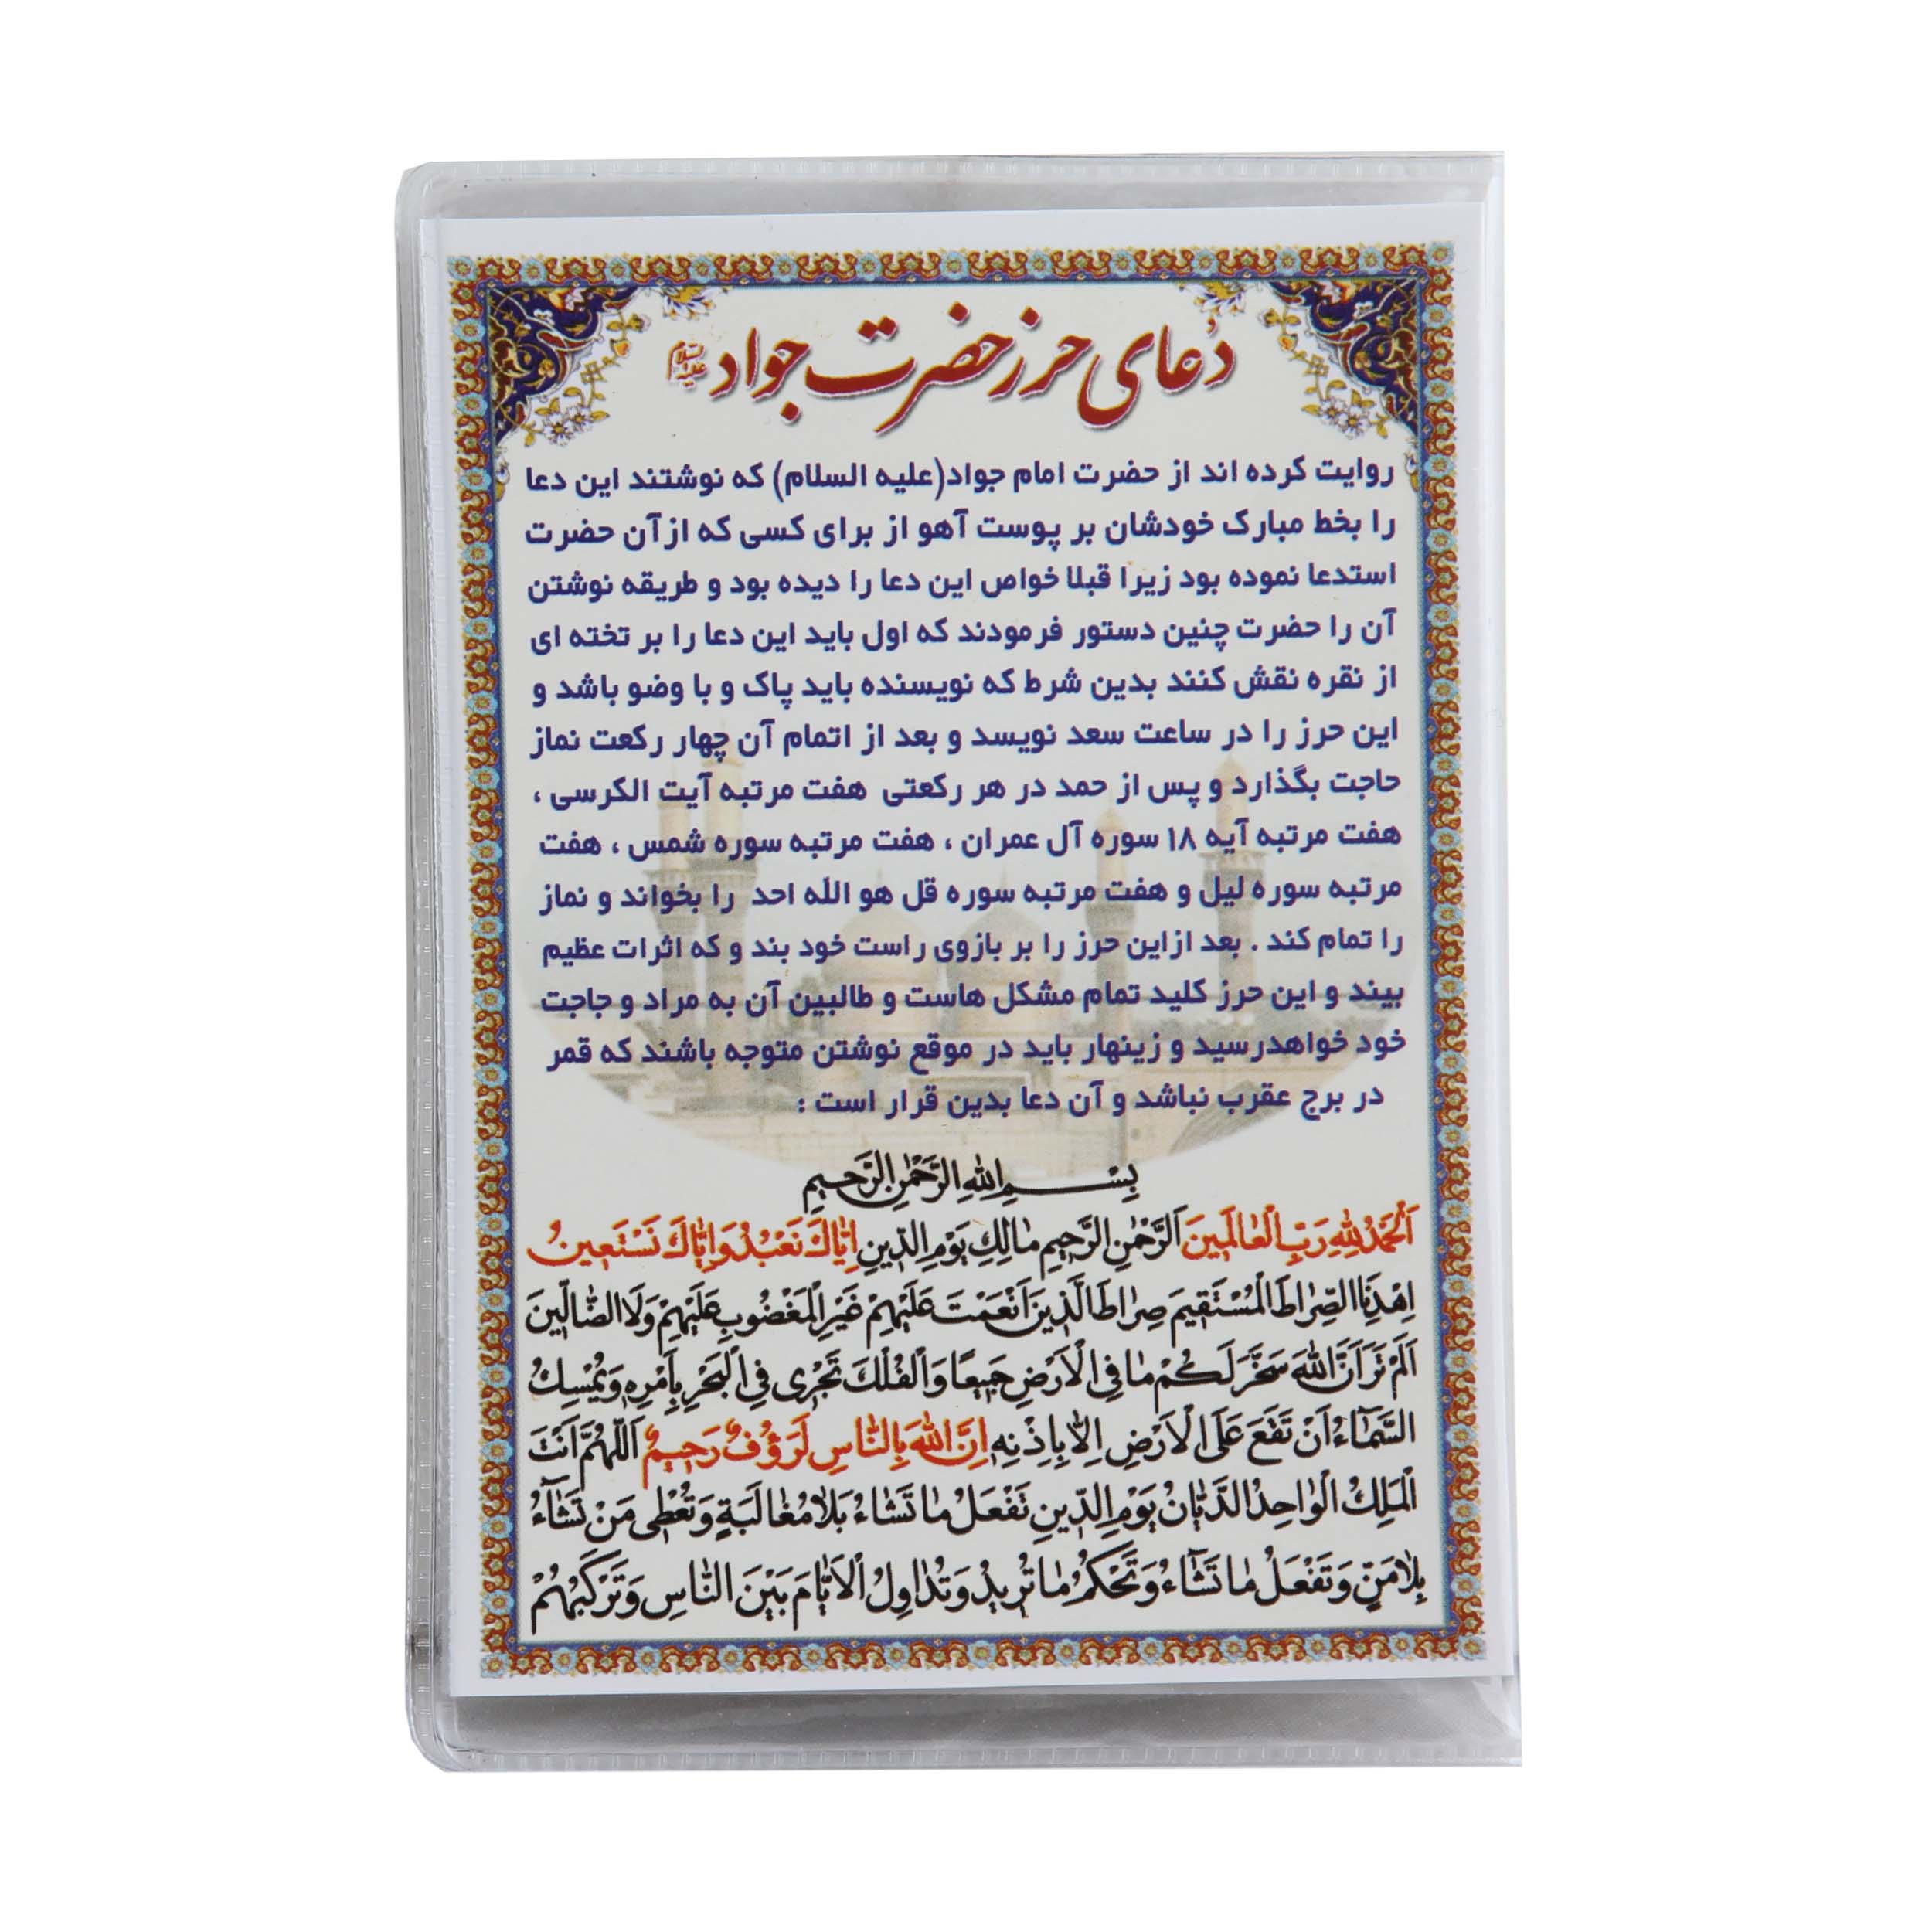 دعای حرز حضرت جواد علیه السلام
روایت کرده اند از حضرت امام جواد(علیه السلام) که نوشتند این دعا
را بخط مبارک خودشان بر پوست آهو از برای کسی که ازآن حضرت
استدعا نموده بود زیرا قبلا خواص این دعا را دیده بود و طریقه نوشتن
آن را حضرت چنین دستور فرمودند که اول باید این دعا را بر تخته ای
از نقره نقش کنند بدین شرط که نویسنده باید پاک و با وضو باشد و
این حرز را در ساعت سعد نویسد و بعد از اتمام آن چهار رکعت نماز
حاجت بگذارد و پس از حمد در هر رکعتی هفت مرتبه آیت الکرسی ،
هفت مرتبه آیه ۱۸ سوره آل عمران ، هفت مرتبه سوره شمس ، هفت
مرتبه سوره لیل و هفت مرتبه سوره قل هو الله احد را بخواند و نماز
را تمام کند . بعد ازاین حرز را بر بازوی راست خود بند و که اثرات عظیم
بیند و این حرز کلید تمام مشکل هاست و طالبین آن به مراد و جاجت
خود خواهدرسید و زینهار باید در موقع نوشتن متوجه باشند که قمر
در برج عقرب نباشد و آن دعا بدین قرار است :
بِسْمِ اللهِ الرَّحْمٰنِ الرَّحیمِ
اَلْحَمْدُ لِلّٰهِ رَبِّ الْعٰالَمینَ اَلرَّحْمٰنِ الرَّحیمِ مٰالِكِ یَوْمِ الدّینِ اِیّٰاكَ نَعْبُدُ وَاِیّٰاكَ نَسْتَعینُ
اِهْدِنَا الصِّرٰاطَ الْمُسْتَقیمَ صِرٰاطَ الَّذینَ اَنْعَمْتَ عَلَیْهِمْ غَیْرِ الْمَغْضُوبِ عَلَیْهِمْ وَلَا الضّٰالّینَ
اَلَمْ تَرَ اَنَّ اللهَ سَخَّرَ لَكُمْ مٰا فِی الْاَرْضِ جَمیعًا وَالْفُلْكَ تَجْری فِی الْبَحْرِ بِاَمْرِهِ وَیُمْسِكُ
السَّمٰاءَ اَنْ تَقَعَ عَلَی الْاَرْضِ اِلّٰا بِاِذْنِهِ اِنَّ اللهَ بِالنّٰاسِ لَرَؤُفٌ رَحیمٌ اَللّٰهُمَّ اَنْتَ
الْمَلِكُ الْوٰاحِدُ الدَّیّٰانُ یَوْمِ الدّینِ تَفْعَلُ مٰا تَشٰاءُ بِلٰا مُغٰالَبَةٍ وَتُعْطی مَنْ تَشٰآءُ
بِلٰا مَنٍّ وَتَفْعَلُ مٰا تَشٰآءُ وَتَحْكُمُ مٰا تُریدُ وَتُدٰاوِلُ الْاَیّٰامَ بَیْنَ النّٰاسِ وَتَرْكَبُهُمْ